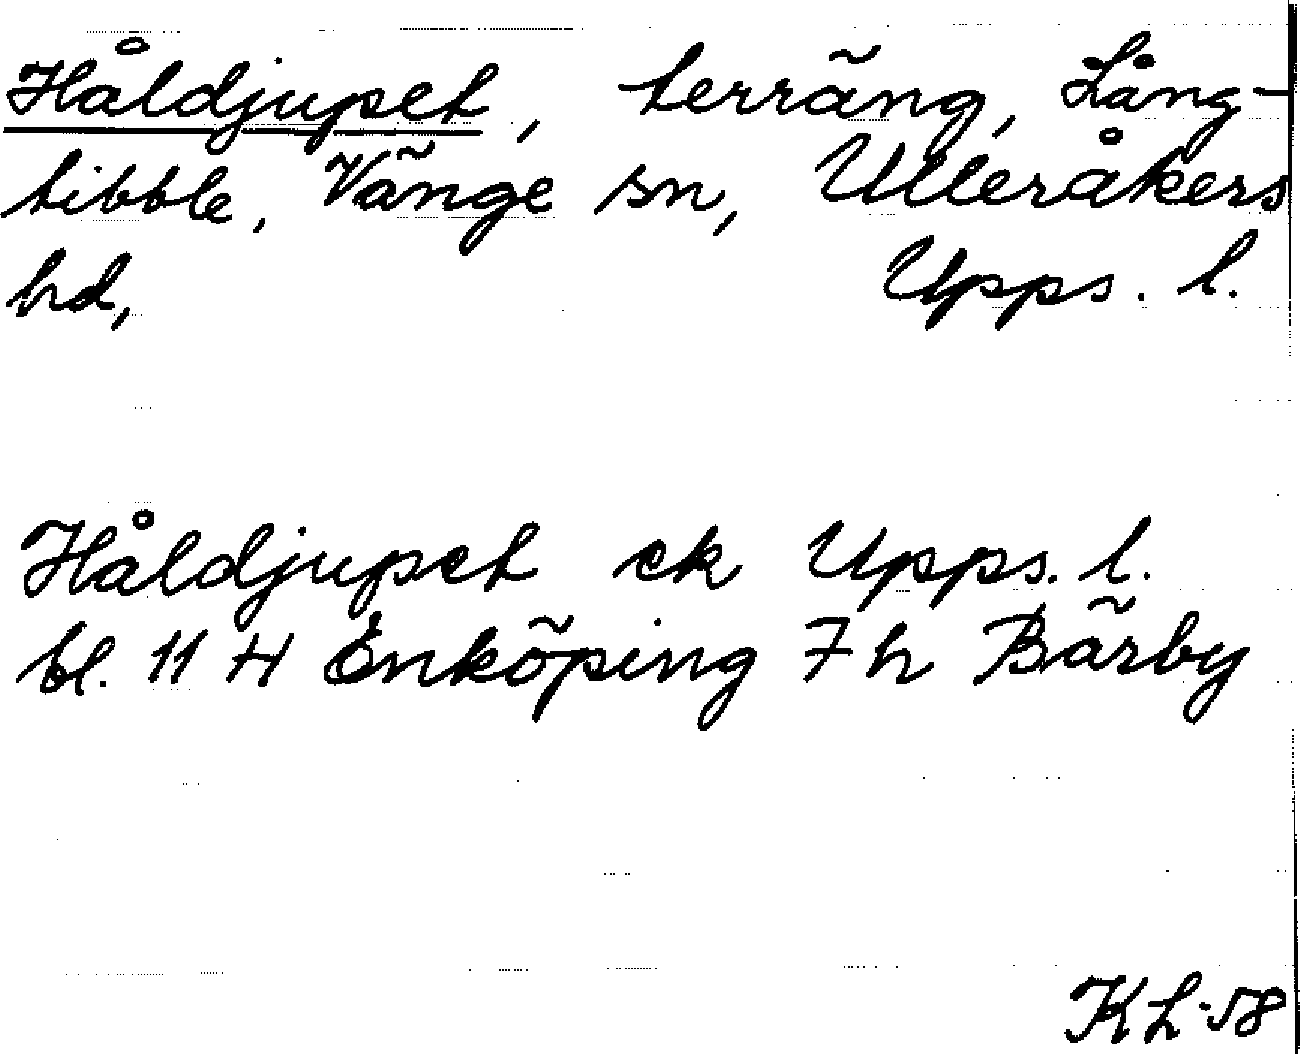 Håldjupet, terräng, Lång-
tibble, Vänge sn, Ulleråkers
hd, Upps. l.
Håldjupet ek Upps. l.
bl. 11 H Enköping 7 h Bärby
KL-58